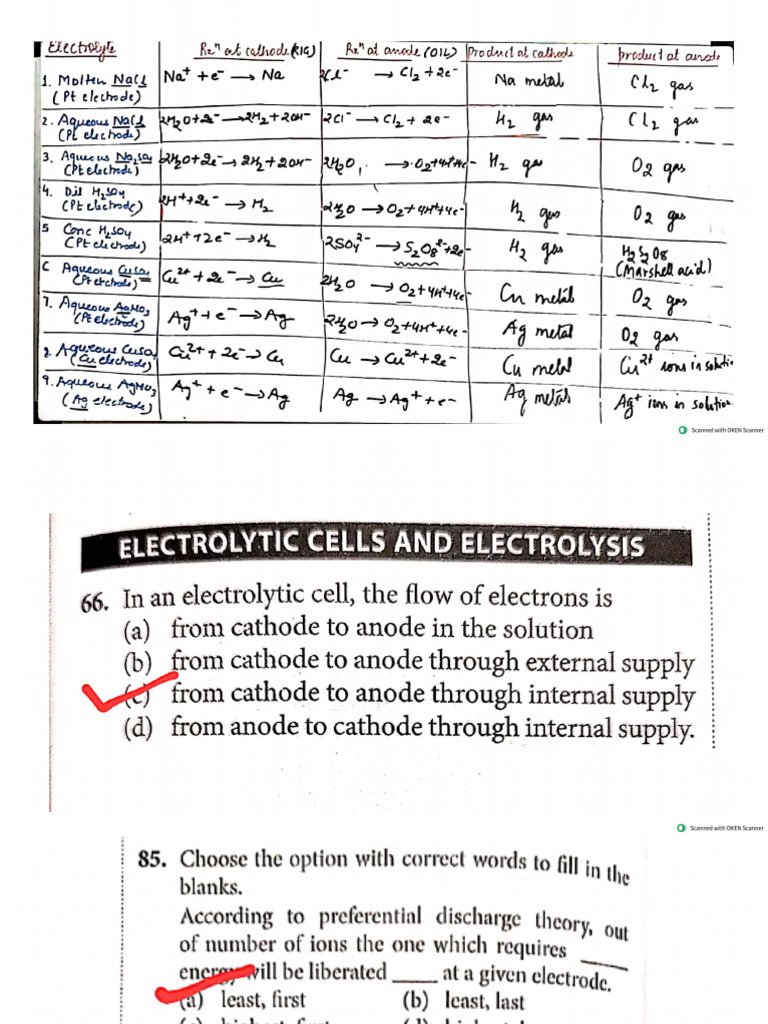 Electrolyte Rxⁿ at cathode (RIG) Rxⁿ at anode (OIL) Product at cathode product at anode
1. Molten NaCl Na⁺ + e⁻ → Na 2Cl⁻ → Cl₂ + 2e⁻ Na metal Cl₂ gas
(Pt electrode)
2. Aqueous NaCl 2H₂O + 2e⁻ → 2H₂ + 2OH⁻ 2Cl⁻ → Cl₂ + 2e⁻ H₂ gas Cl₂ gas
(Pt electrode)
3. Aqueous Na₂SO₄ 2H₂O + 2e⁻ → 2H₂ + 2OH⁻ 2H₂O → O₂ + 4H⁺ + 4e⁻ H₂ gas O₂ gas
(Pt electrode)
4. Dil H₂SO₄ 2H⁺ + 2e⁻ → H₂ 2H₂O → O₂ + 4H⁺ + 4e⁻ H₂ gas O₂ gas
(Pt electrode)
5 Conc H₂SO₄ 2H⁺ + 2e⁻ → H₂ 2SO₄²⁻ → S₂O₈²⁻ + 2e⁻ H₂ gas H₂S₂O₈
(Pt electrode) (Marshell acid)
6 Aqueous CuSO₄ Cu²⁺ + 2e⁻ → Cu 2H₂O → O₂ + 4H⁺ + 4e⁻ Cu metal O₂ gas
(Pt etchode)
7. Aqueous AgNO₃ Ag⁺ + e⁻ → Ag 2H₂O → O₂ + 4H⁺ + 4e⁻ Ag metal O₂ gas
(Pt electrode)
8. Aqueous CuSO₄ Cu²⁺ + 2e⁻ → Cu Cu → Cu²⁺ + 2e⁻ Cu metal Cu²⁺ ions in solution
(Cu electrode)
9. Aqueous AgNO₃ Ag⁺ + e⁻ → Ag Ag → Ag⁺ + e⁻ Ag metal Ag⁺ ions in solution
(Ag electrode)
Scanned with OKEN Scanner
ELECTROLYTIC CELLS AND ELECTROLYSIS
66. In an electrolytic cell, the flow of electrons is
(a) from cathode to anode in the solution
(b) from cathode to anode through external supply
(c) from cathode to anode through internal supply
(d) from anode to cathode through internal supply.
Scanned with OKEN Scanner
85. Choose the option with correct words to fill in the
blanks.
According to preferential discharge theory, out
of number of ions the one which requires ____
energy will be liberated ____ at a given electrode.
(a) least, first (b) least, last